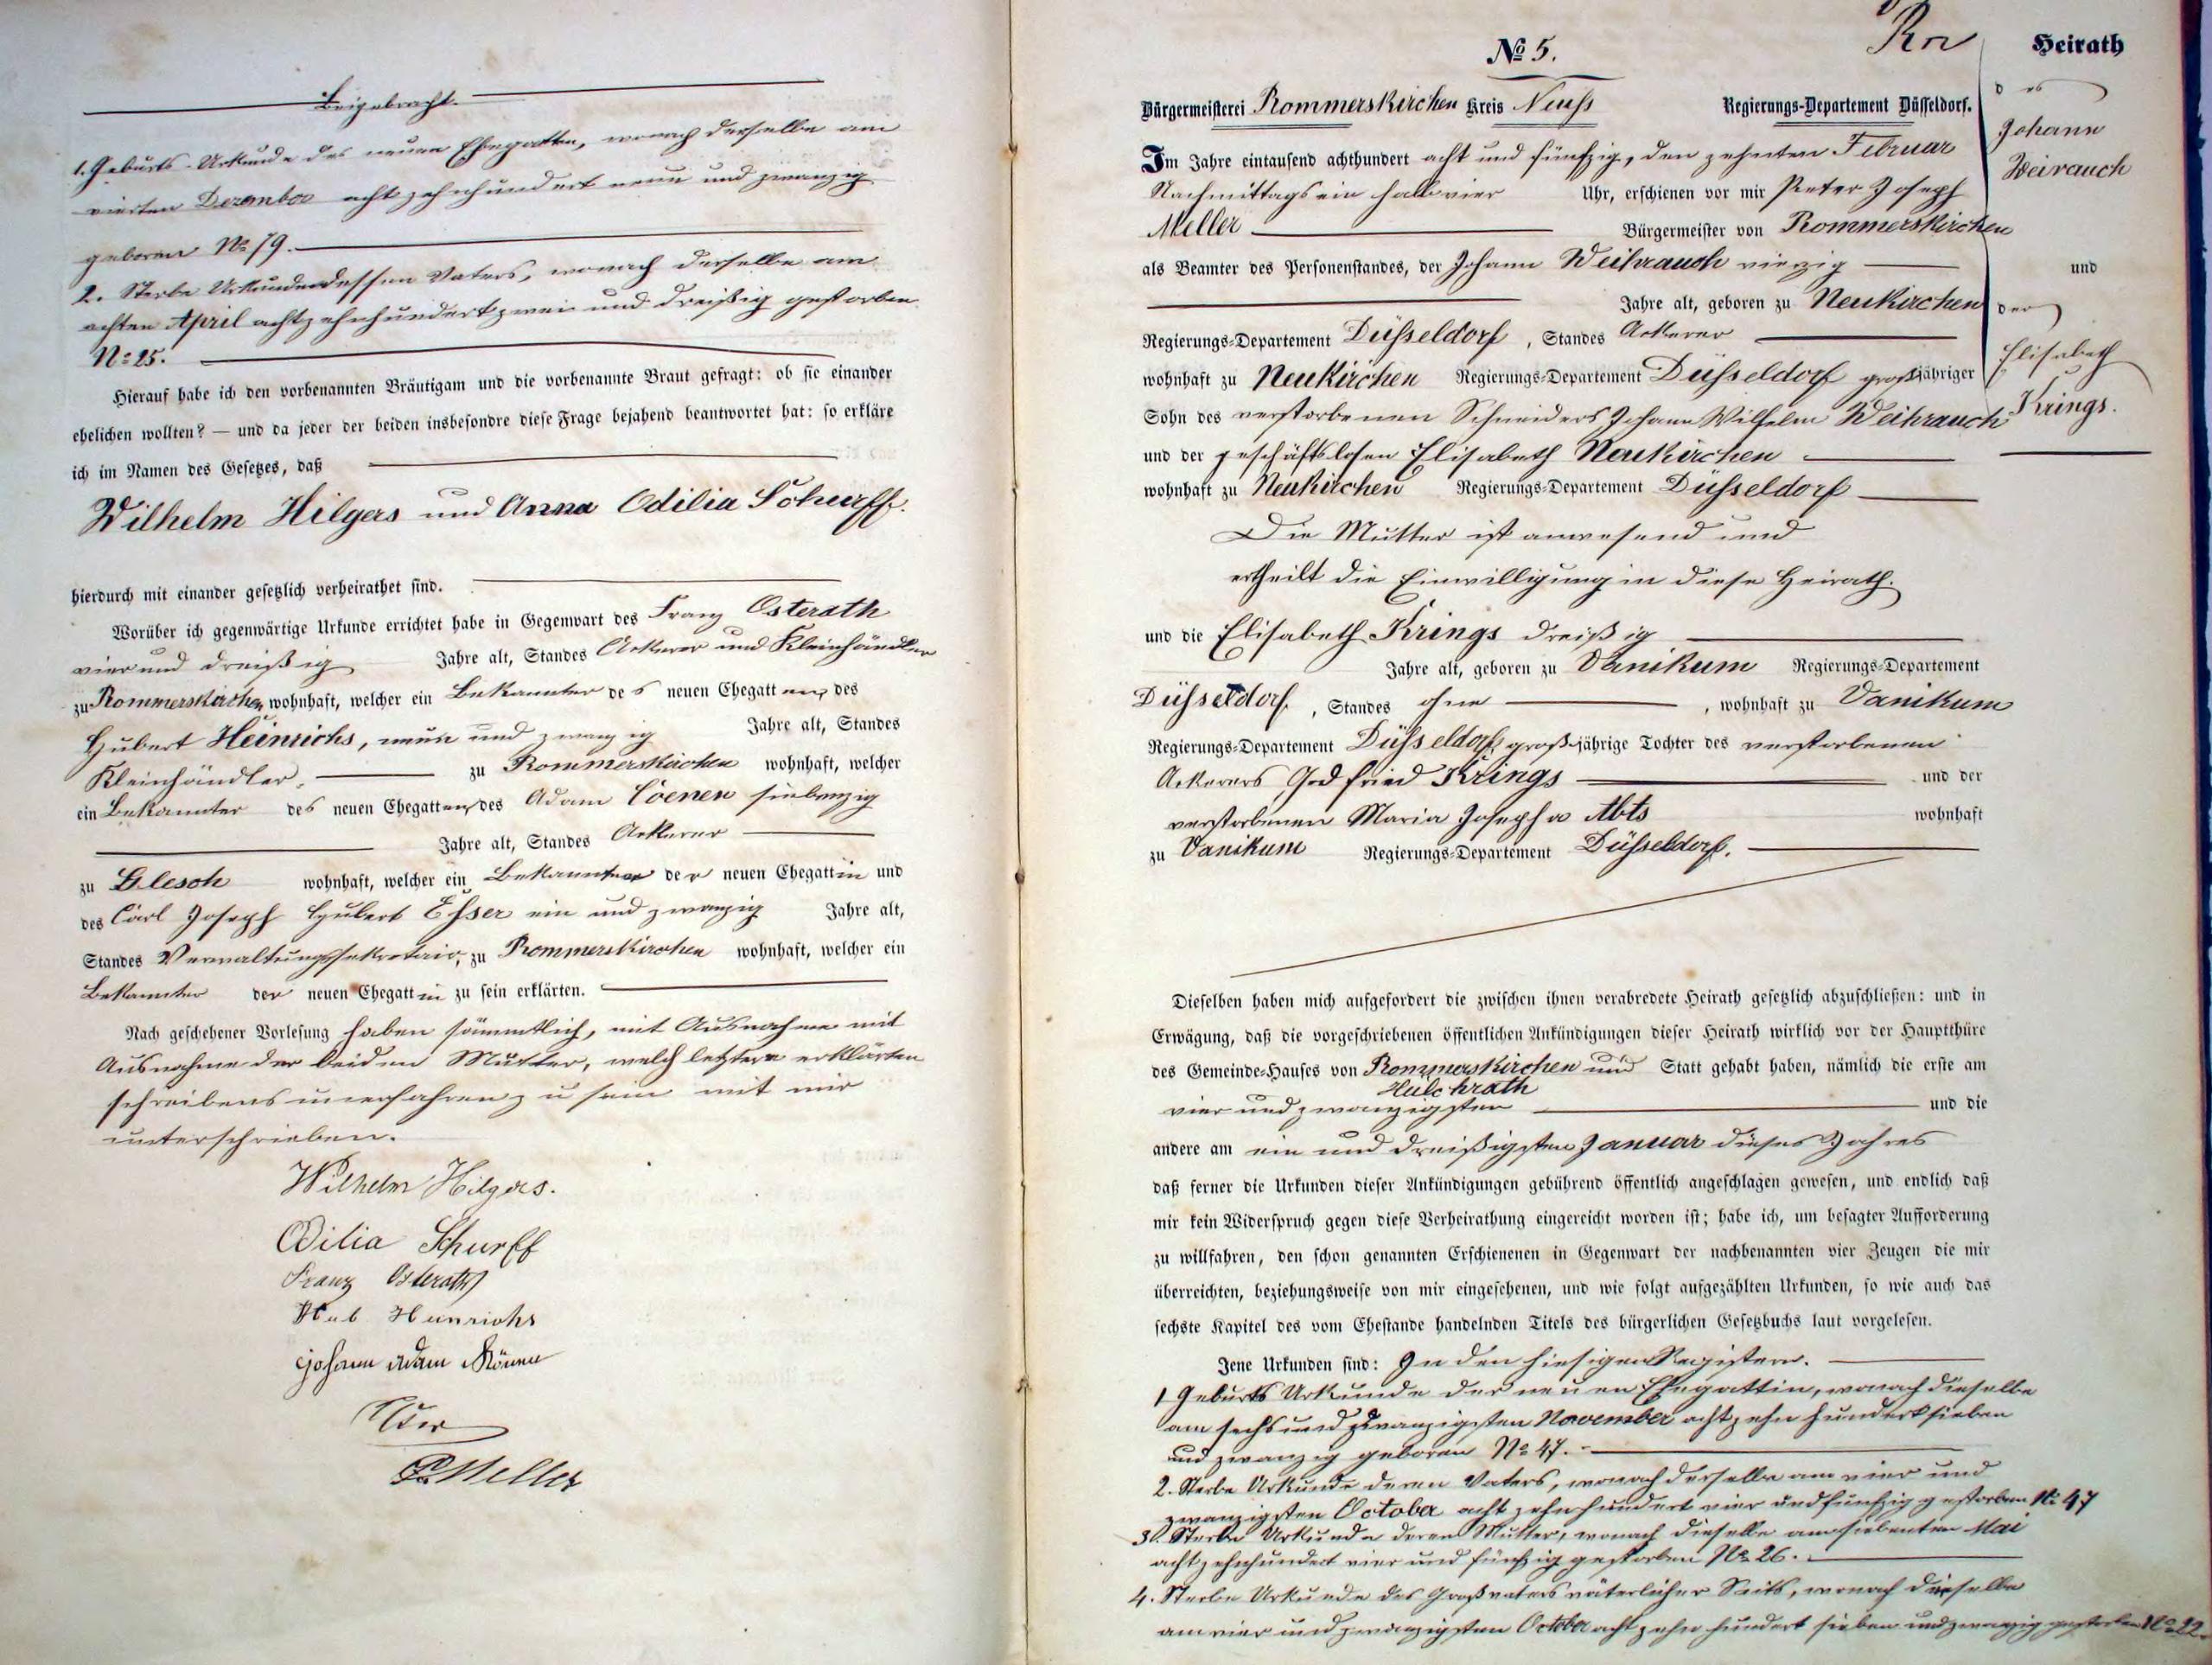 Beigebracht.
1. Geburts-Urkunde des neuen Ehegatten, wonach derselbe am
vierten Dezember achtzehnhundert neun und zwanzig
geboren No 79.
2. Sterbe Urkunde dessen Vaters, wonach derselbe am
achten April achtzehnhundert zwei und dreißig gestorben
No: 25.
Hierauf habe ich den vorbenannten Bräutigam und die vorbenannte Braut gefragt: ob sie einander
ehelichen wollten? — und da jeder der beiden insbesondre diese Frage bejahend beantwortet hat: so erkläre
ich im Namen des Gesetzes, daß
Wilhelm Hilgers und Anna Odilia Schurff.
hierdurch mit einander gesetzlich verheirathet sind.
Worüber ich gegenwärtige Urkunde errichtet habe in Gegenwart des Franz Osterath
vier und dreißig Jahre alt, Standes Ackerer und Kleinhändler
zu Rommerskirchen wohnhaft, welcher ein Bekannter des neuen Ehegatten, des
Hubert Heinrichs, neun und zwanzig Jahre alt, Standes
Kleinhändler, zu Rommerskirchen wohnhaft, welcher
ein Bekannter des neuen Ehegatten, des Adam Coenen siebenzig
Jahre alt, Standes Ackerer
zu Glesch wohnhaft, welcher ein Bekannter der neuen Ehegattin und
des Carl Joseph Hubert Esser ein und zwanzig Jahre alt,
Standes Verwaltungssekretair, zu Rommerskirchen wohnhaft, welcher ein
Bekannter der neuen Ehegattin zu sein erklärten.
Nach geschehener Vorlesung haben sämmtlich, mit Ausnahme mit
Ausnahme der beiden Mütter, welch letztere erklärten
schreibens unerfahren zu sein mit mir
unterschrieben.
Wilhelm Hilgers.
Odilia Schurff
Franz Osterath
Hub Heinrichs
Johann Adam Könen
Meller
No 5.
Heirath
des
Johann
Weirauch
und
der
Elisabeth
Krings.
Bürgermeisterei Rommerskirchen Kreis Neuss Regierungs-Departement Düsseldorf.
Im Jahre eintausend achthundert acht und fünfzig, den zehnten Februar
Nachmittags ein halb vier Uhr, erschienen vor mir Peter Joseph
Meller Bürgermeister von Rommerskirchen
als Beamter des Personenstandes, der Johann Weihrauch vierzig
Jahre alt, geboren zu Neukirchen
Regierungs-Departement Düsseldorf, Standes Ackerer
wohnhaft zu Neukirchen Regierungs-Departement Düsseldorf großjähriger
Sohn des verstorbenen Schneiders Johann Wilhelm Weihrauch
und der geschäftslosen Elisabeth Neukirchen
wohnhaft zu Neukirchen Regierungs-Departement Düsseldorf
Die Mutter ist anwesend und
ertheilt die Einwilligung in diese Heirath.
und die Elisabeth Krings dreißig
Jahre alt, geboren zu Vanikum Regierungs-Departement
Düsseldorf, Standes ohne, wohnhaft zu Vanikum
Regierungs-Departement Düsseldorf, großjährige Tochter des verstorbenen
Ackerers Godfried Krings und der
verstorbenen Maria Josepha Abts wohnhaft
zu Vanikum Regierungs-Departement Düsseldorf.
Dieselben haben mich aufgefordert die zwischen ihnen verabredete Heirath gesetzlich abzuschließen: und in
Erwägung, daß die vorgeschriebenen öffentlichen Ankündigungen dieser Heirath wirklich vor der Hauptthüre
des Gemeinde-Hauses von Rommerskirchen und Statt gehabt haben, nämlich die erste am
Hülchrath
vier und zwanzigsten und die
andere am ein und dreißigsten Januar dieses Jahres
daß ferner die Urkunden dieser Ankündigungen gebührend öffentlich angeschlagen gewesen, und endlich daß
mir kein Widerspruch gegen diese Verheirathung eingereicht worden ist; habe ich, um besagter Aufforderung
zu willfahren, den schon genannten Erschienenen in Gegenwart der nachbenannten vier Zeugen die mir
überreichten, beziehungsweise von mir eingesehenen, und wie folgt aufgezählten Urkunden, so wie auch das
sechste Kapitel des vom Ehestande handelnden Titels des bürgerlichen Gesetzbuchs laut vorgelesen.
Jene Urkunden sind: In den hiesigen Registern.
1 Geburts Urkunde der neuen Ehegattin, wonach dieselbe
am sechs und zwanzigsten November achtzehn hundert sieben
und zwanzig geboren No 47.
2. Sterbe Urkunde deren Vaters, wonach derselbe am vier und
zwanzigsten October achtzehnhundert vier und fünfzig gestorben No 47
3. Sterbe Urkunde deren Mutter, wonach dieselbe am siebenten Mai
achtzehnhundert vier und fünfzig gestorben No 26.
4. Sterbe Urkunde des Großvaters väterlicher Seits, wonach dieselbe
am vier und zwanzigsten October achtzehn hundert sieben und zwanzig gestorben No 22.